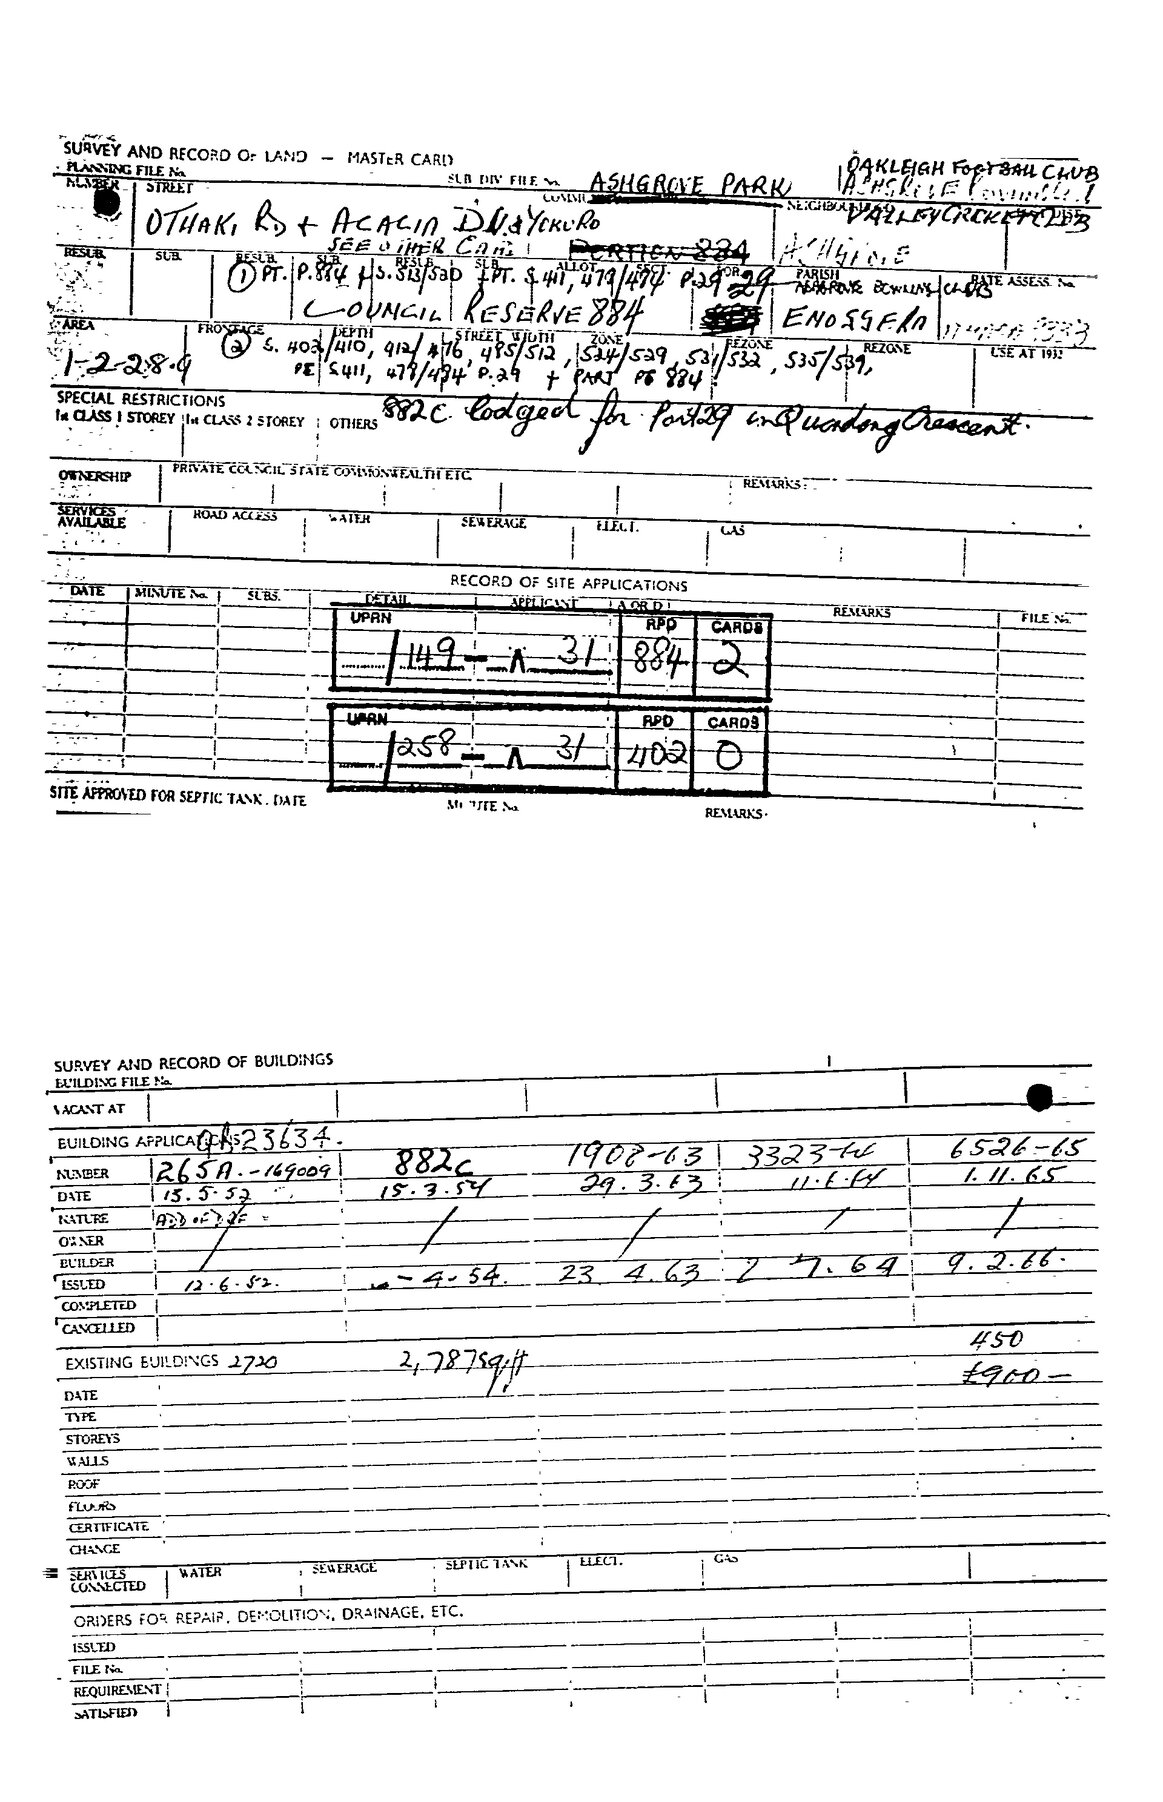 SURVEY AND RECORD OF LAND — MASTER CARD
OAKLEIGH FOOTBALL CLUB
PLANNING FILE No.
SUB DIV FILE No. ASHGROVE PARK
ASHGROVE
NUMBER STREET
NEIGHBOURHOOD
VALLEY CRICKET CLUB
OTHAKI RD + ACACIA DV. &
SEE OTHER CARD PORTION 884 ASHGROVE
RESUB. SUB. RESUB. SUB. RESUB. SUB. ALLOT. SEC. POR. PARISH RATE ASSESS. No.
① PT. P.884 + S.513/520 + PT. S.411, 479/494 P.29 29 ASHGROVE BOWLING CLUB
COUNCIL RESERVE 884 ENOGGERA
AREA FRONTAGE DEPTH STREET WIDTH ZONE REZONE REZONE USE AT 1932
② S. 402/410, 412/416, 485/512, 524/529, 531/532, 535/539,
1-2-28.9
S411, 479/494 P.29 + PART 884
SPECIAL RESTRICTIONS
1st CLASS 1 STOREY 1st CLASS 2 STOREY OTHERS
882c lodged for Port 29 in Quandong Crescent.
OWNERSHIP PRIVATE COUNCIL STATE COMMONWEALTH ETC. REMARKS:
SERVICES AVAILABLE ROAD ACCESS WATER SEWERAGE ELECT. GAS
RECORD OF SITE APPLICATIONS
DATE MINUTE No. SUBS. DETAIL APPLICANT A OR D REMARKS FILE No.
UPRN RPD CARDS
/149 - A 31 884 2
UPRN RPD CARDS
/258 - A 31 402 0
SITE APPROVED FOR SEPTIC TANK. DATE MINUTE No. REMARKS.
SURVEY AND RECORD OF BUILDINGS
BUILDING FILE No.
VACANT AT
BUILDING APPLICATIONS 23634.
NUMBER 265A.-169009 882c 1908-63 3323-64 6526-65
DATE 15.5.52 15.3.54 29.3.63 11.6.64 1.11.65
NATURE
OWNER
BUILDER
ISSUED 12.6.52. -4-54. 23 4.63 2 7.64 9.2.66.
COMPLETED
CANCELLED
450
EXISTING BUILDINGS 2720 2,787 sq/ft
£900—
DATE
TYPE
STOREYS
WALLS
ROOF
FLOORS
CERTIFICATE
CHANGE
SERVICES CONNECTED WATER SEWERAGE SEPTIC TANK ELECT. GAS
ORDERS FOR REPAIR, DEMOLITION, DRAINAGE, ETC.
ISSUED
FILE No.
REQUIREMENT
SATISFIED